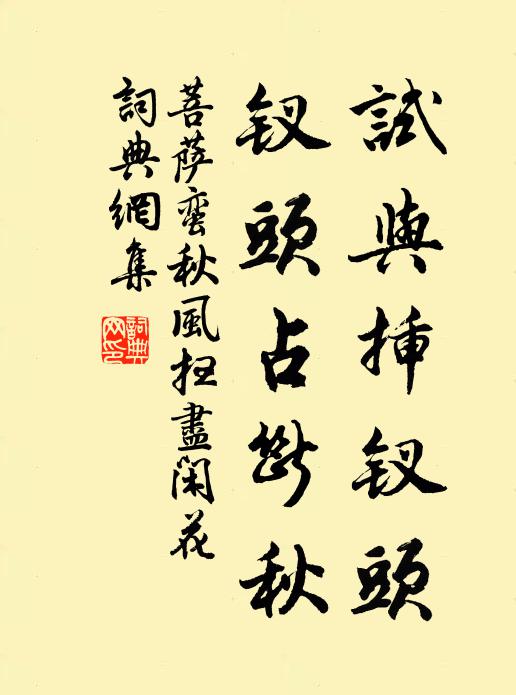 試與插釵頭
釵頭占斷秋
菩薩蛮秋風扫盡閑花
詞典網集
詞典網印